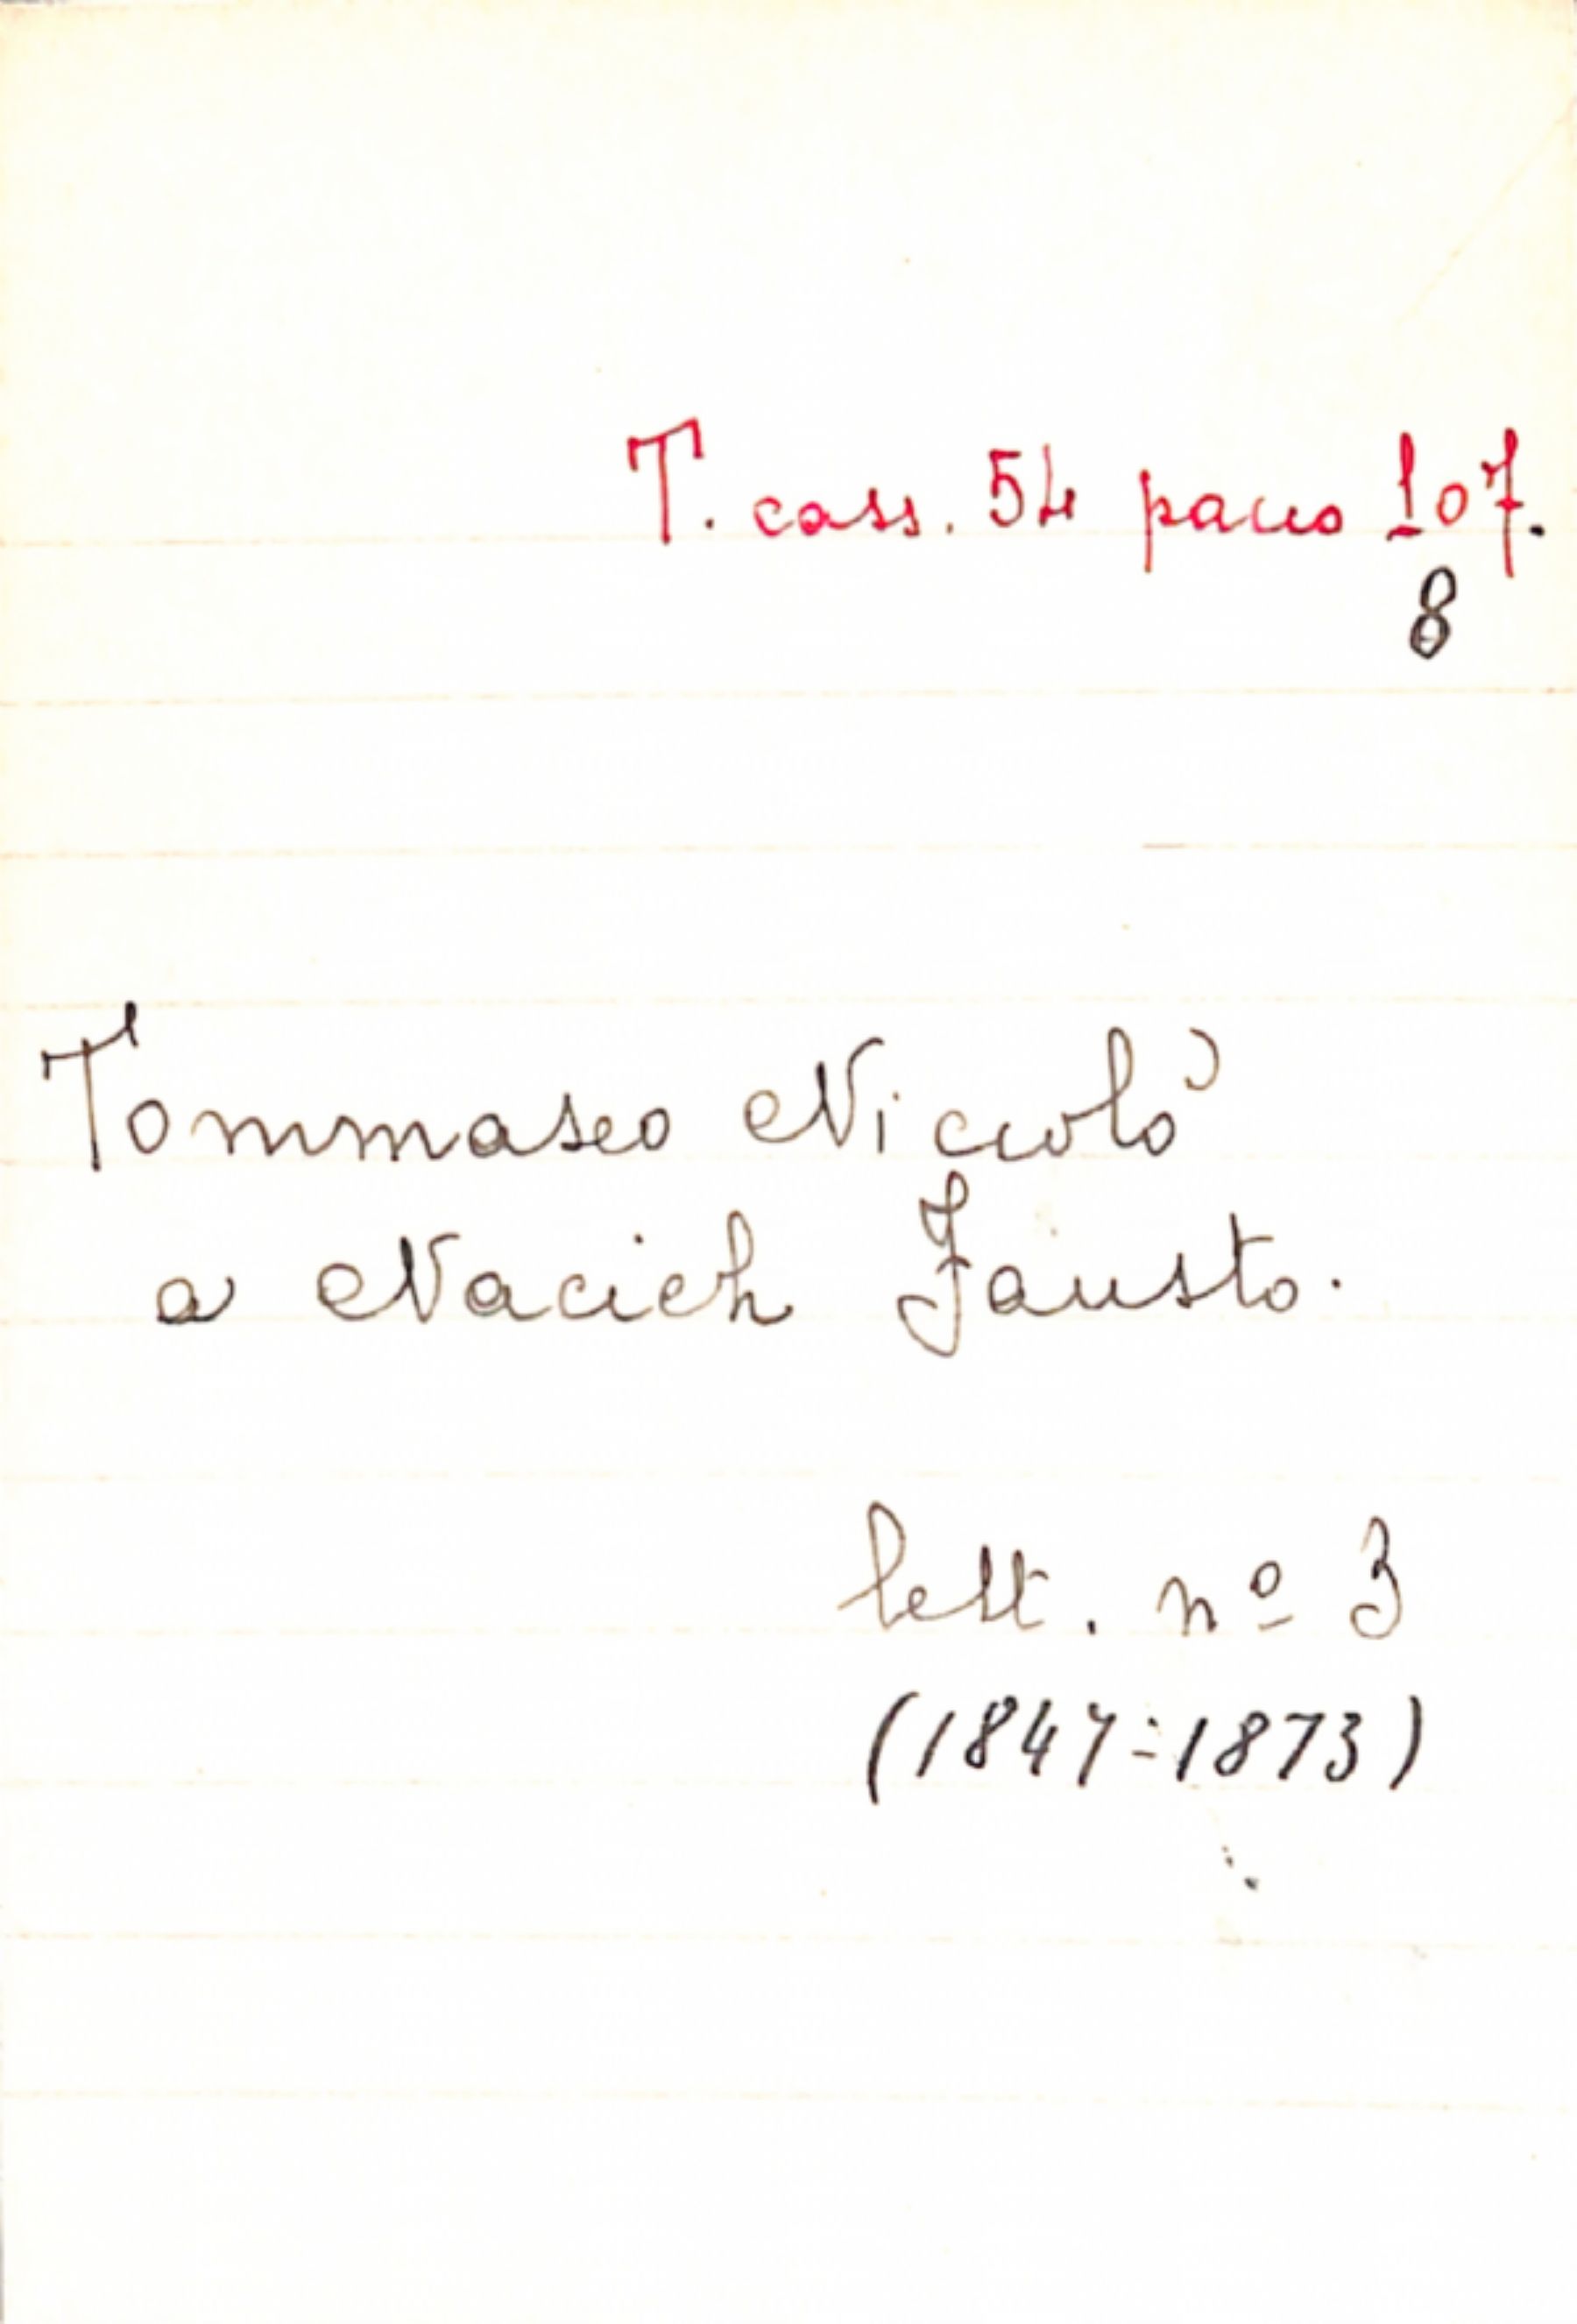 T. cass. 54 pacco 107.
8
Tommaseo Niccolò
a Nacich Fausto.
lett. nº 3
(1847-1873)